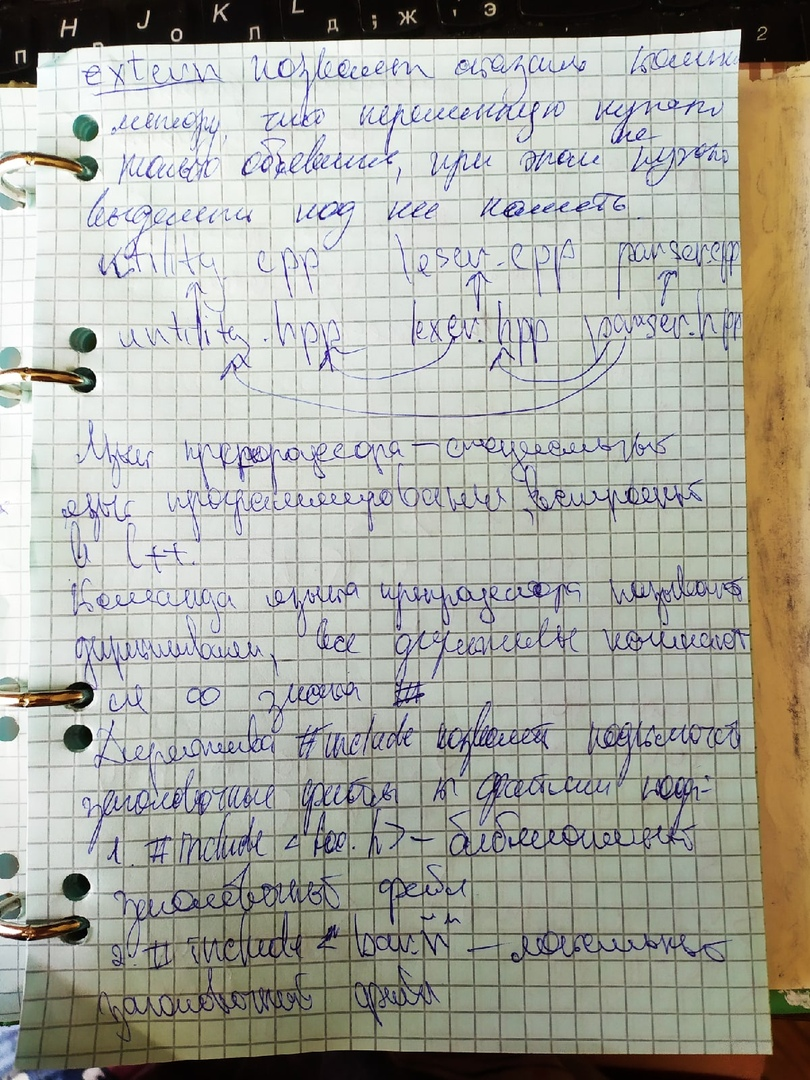 П Н J О К П L Д ; Ж ' Э
2
extern позволяет сказать компи
лятору, что переменную нужно
только объявить, при этом не нужно
выделять под нее память.
utility.cpp lexer.cpp parser.cpp
untility.hpp lexer.hpp parser.hpp
Язык препроцессора – специальный
язык программирования, встроенный
в C++.
Команда языка препроцессора называют
директивами, все директивы начинают
ся со знака #
Директива #include позволяет подключать
заголовочные файлы к файлам кода:
1. #include <foo.h> – библиотечный
заголовочный файл
2. #include "bar.h" – локальный
заголовочный файл